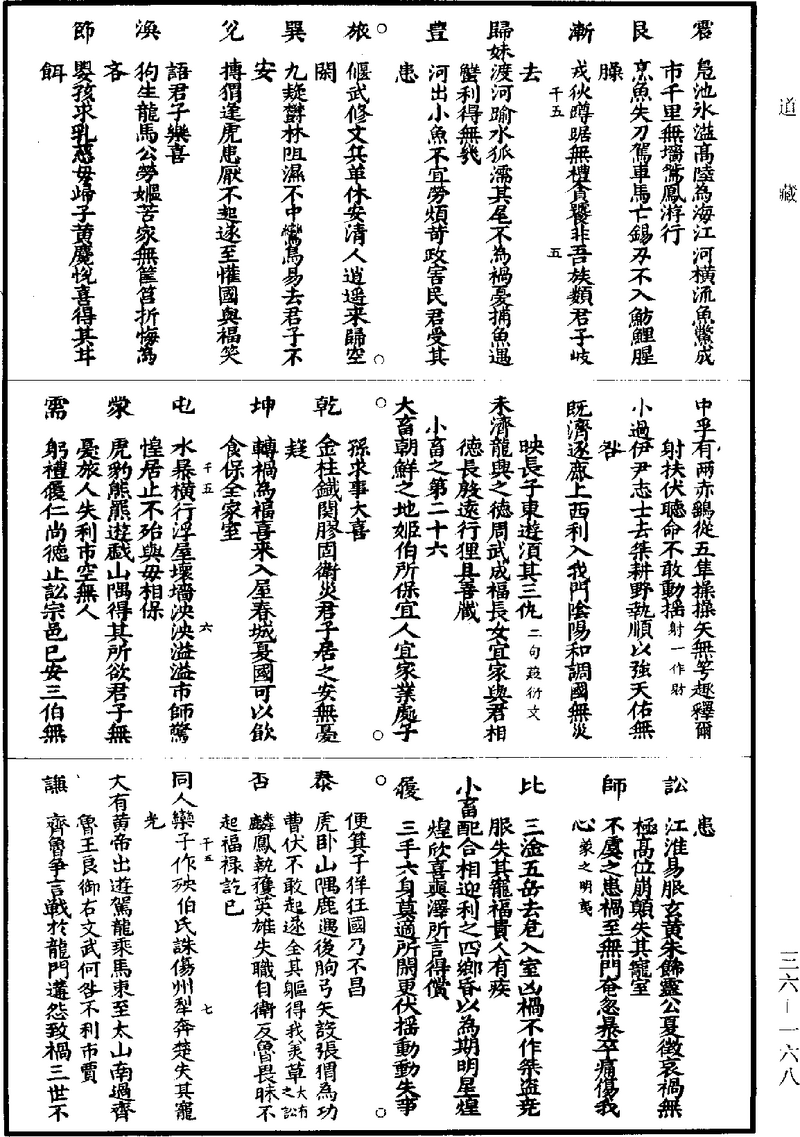 道藏
震 鳧池水溢高陸為海江河橫流魚鱉成
市千里無墻鴛鳳游行
艮 烹魚失刀駕車馬亡錫刃不入魴鯉腥
臊
漸 戎狄蹲踞無禮貪饕非吾族類君子歧
千五
五
去
歸妹渡河踰水狐濡其尾不為禍憂捕魚遇
蟹利得無幾
豐 河出小魚不宜勞煩苛政害民君受其
患
○旅 偃武修文兵革休安清人逍遥來歸空○
閑
巽 九疑欝林咀濕不中鸞鳥易去君子不
安
兌 摶猬逢虎患厭不起遂至懽國與福笑
語君子樂喜
渙 狗生龍馬公勞嫗苦家無筐筥折悔為
吝
節 嬰孩求乳慈母歸子黃麑悅喜得其甘
餌
中孚有兩赤鷂從五隼操操矢無笴趣釋爾
射扶伏聽命不敢動摇射一作財
小過伊尹志士去桀耕野執順以強天佑無
咎
既濟逐鹿上西利入我門陰陽和調國無災
映長子東遊湏其三仇二句疑衍文
未濟龍興之德周武成福長女宜家與君相
德長殷遠行狸且善藏
小畜之第二十六
大畜朝鮮之地姬伯所保宜人宜家業處子
○孫求事大喜○
乾 金柱鐵関膠固衛災君子居之安無憂
疑
坤 轉禍為福喜來入屋春城夏國可以飲
食保全家室
屯 水暴橫行浮屋壞墻泱泱溢溢市師驚
千五
六
惶居止不殆與母相保
蒙 虎豹熊羆遊戲山隅得其所欲君子無
憂旅人失利市空無人
需 躬禮履仁尚德止訟宗邑已安三伯無
患
訟 江淮易服玄黃朱飾靈公夏徵哀禍無
極高位崩顛失其寵室
師 不虞之患禍至無門奄忽暴卒痛傷我
心蒙之明夷
比 三淦五岳去危入室凶禍不作桀盜堯
服失其寵福貴人有疾
小畜配合相迎利之四鄉昏以為期明星煌
煌欣喜奭澤所言得償
履 三手六身莫適所閑更伏摇動動失事
○便箕子佯狂國乃不昌○
泰 虎卧山隅鹿遇後朐弓矢設張猬為功
曹伏不敢起遂全其軀得我美草大有之訟
否 麟鳳執獲英雄失職自衛反魯畏昧不
起福禄訖已
同人欒子作殃伯氏誅傷州犁奔楚失其寵
千五
七
光
大有黃帝出遊駕龍乘馬東至太山南過齊
魯王良御右文武何咎不利市賈
謙 齊魯爭言戰於龍門遘怨致禍三世不
三六—一六八